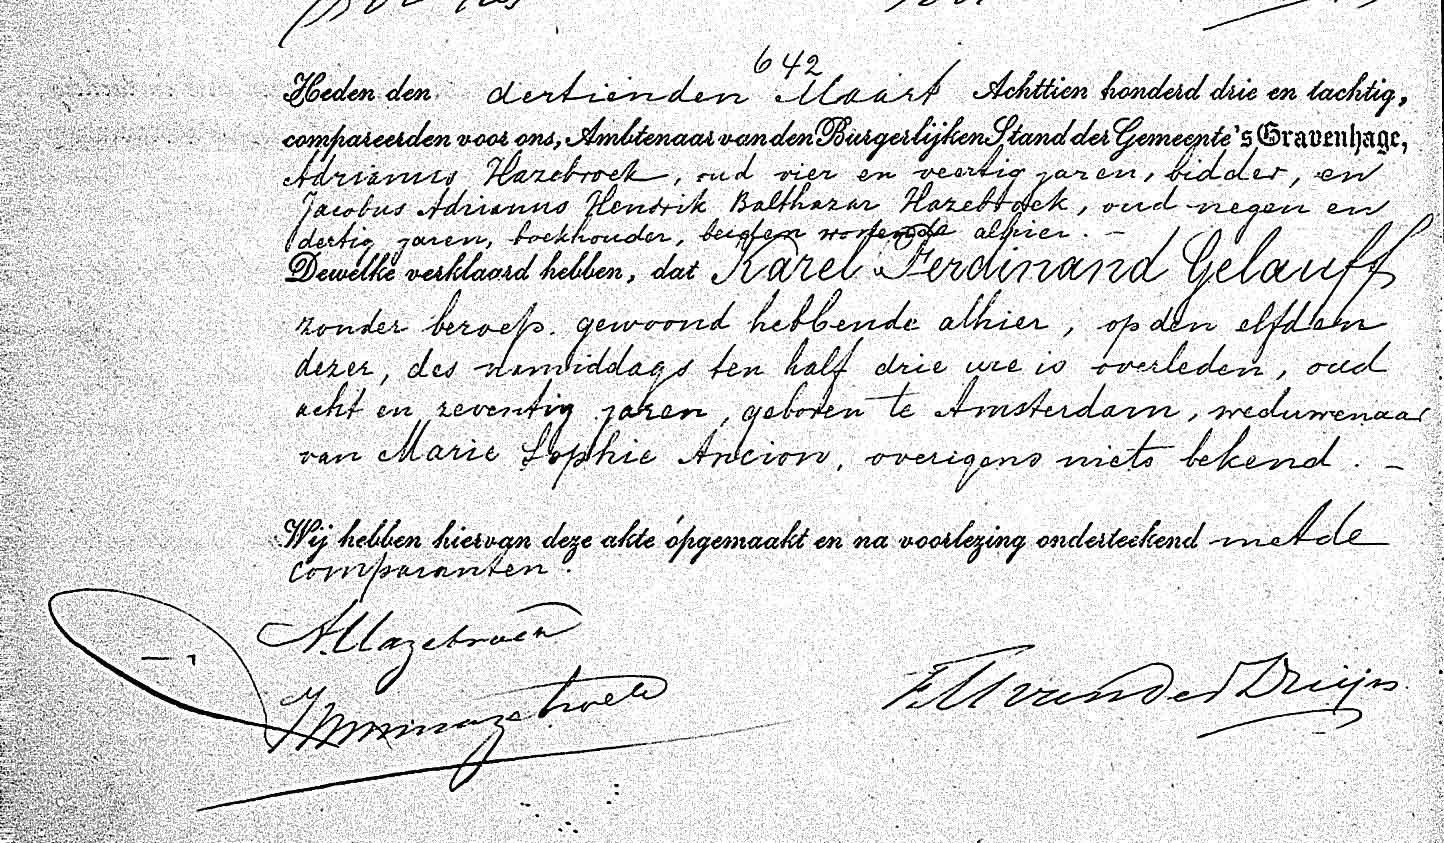 642
Heden den dertienden Maart Achttien honderd drie en tachtig,
compareerden voor ons, Ambtenaar van den Burgerlijken Stand der Gemeente 's Gravenhage,
Adrianus Hazebroek, oud vier en veertig jaren, bidder, en
Jacobus Adrianus Hendrik Balthazar Hazebroek, oud negen en
dertig jaren, boekhouder, beiden wonende alhier. –
Dewelke verklaard hebben, dat Karel Ferdinand Gelauff
zonder beroep. gewoond hebbende alhier, op den elfden
dezer, des namiddags ten half drie ure is overleden, oud
acht en zeventig jaren, geboren te Amsterdam, weduwenaar
van Marie Sophie Ancion, overigens niets bekend. –
Wij hebben hiervan deze akte opgemaakt en na voorlezing onderteekend met de
comparanten.
A. Hazebroek